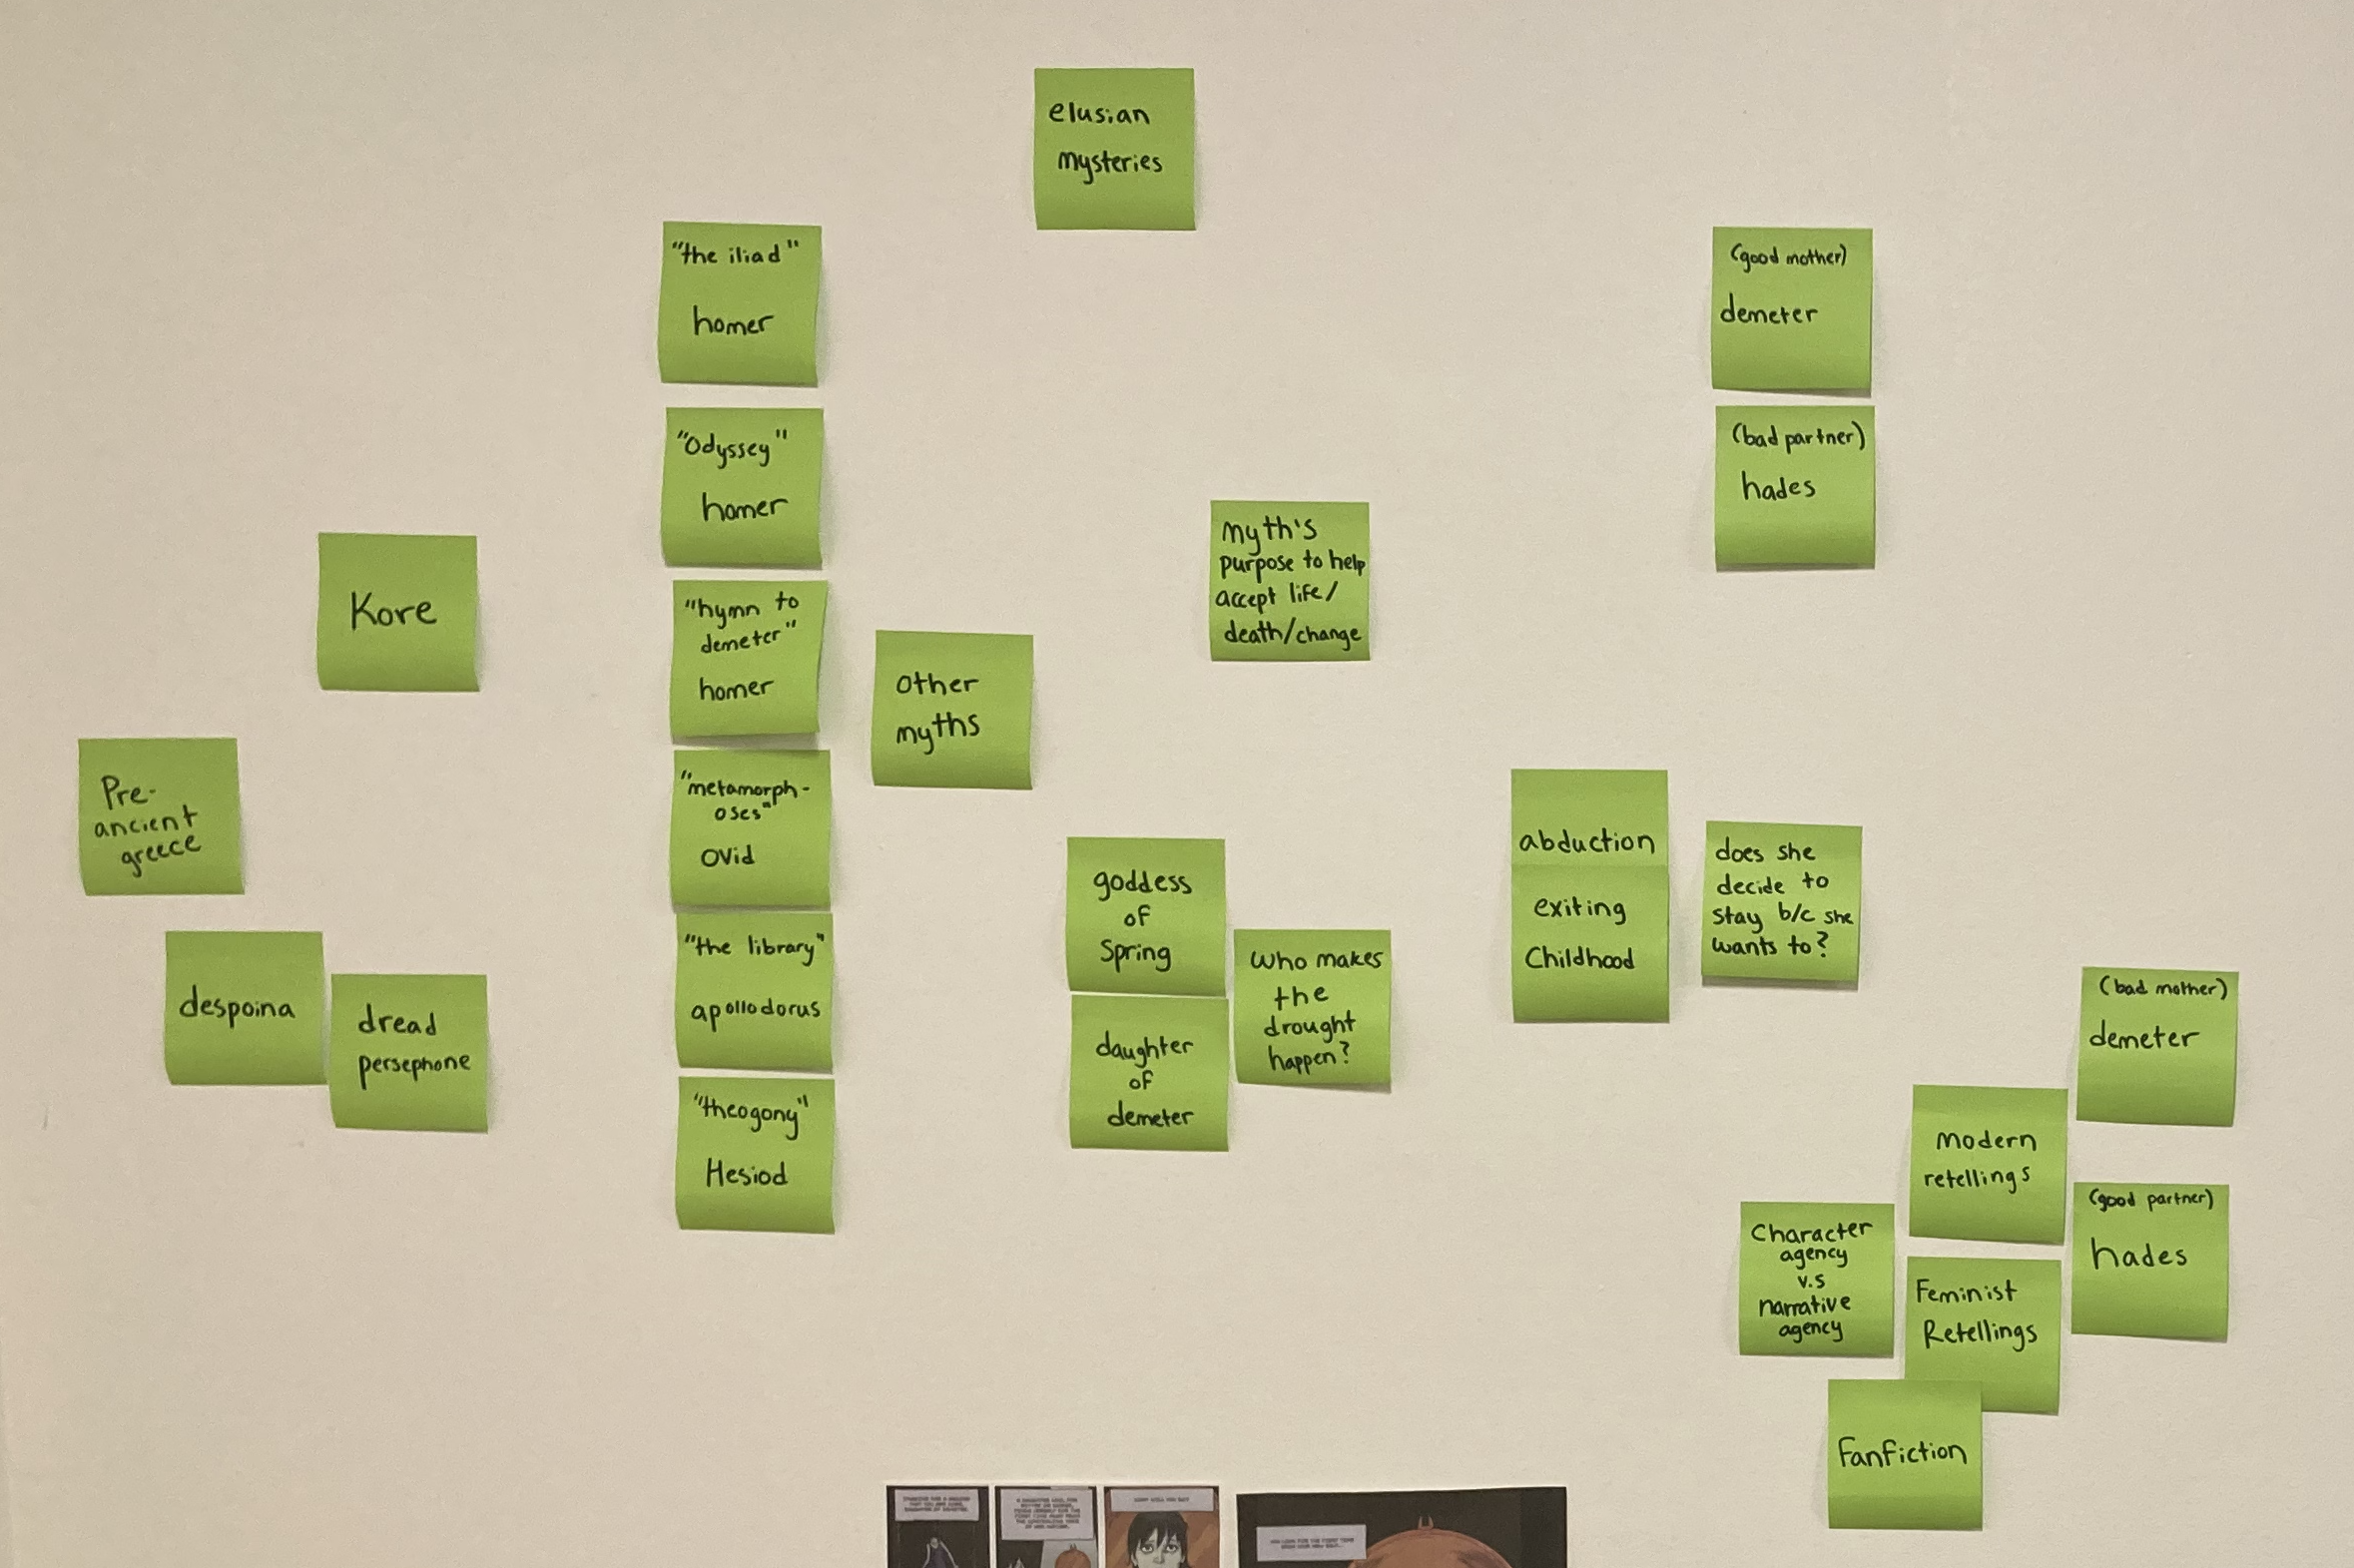 elusian
mysteries
"the iliad"
homer
"Odyssey"
homer
"hymn to
demeter"
homer
"metamorph-
oses"
ovid
"the library"
apollodorus
"theogony"
Hesiod
Kore
Pre-
ancient
greece
despoina
dread
persephone
other
myths
myth's
purpose to help
accept life/
death/change
goddess
of
Spring
daughter
of
demeter
who makes
the
drought
happen?
(good mother)
demeter
(bad partner)
hades
abduction
exiting
Childhood
does she
decide to
stay b/c she
wants to?
(bad mother)
demeter
modern
retellings
(good partner)
hades
Character
agency
v.s
narrative
agency
Feminist
Retellings
Fanfiction